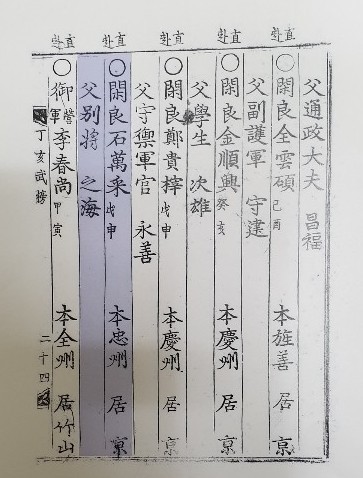 父通政大夫 昌福
直赴
○閑良全雲碩 己酉 本旌善 居京
父副護軍 守建
直赴
○閑良金順興 癸亥 本慶州 居京
父學生 次雄
直赴
○閑良鄭貴梓 戊申 本慶州 居京
父守禦軍官 永善
直赴
○閑良石萬采 戊申 本忠州 居京
父別將 之海
直赴
○御營軍李春尚 甲寅 本全州 居竹山
丁亥武榜 二十四